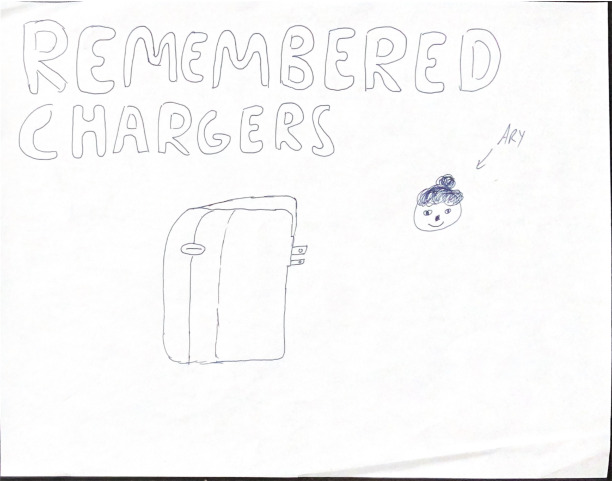 REMEMBERED
CHARGERS
ARY